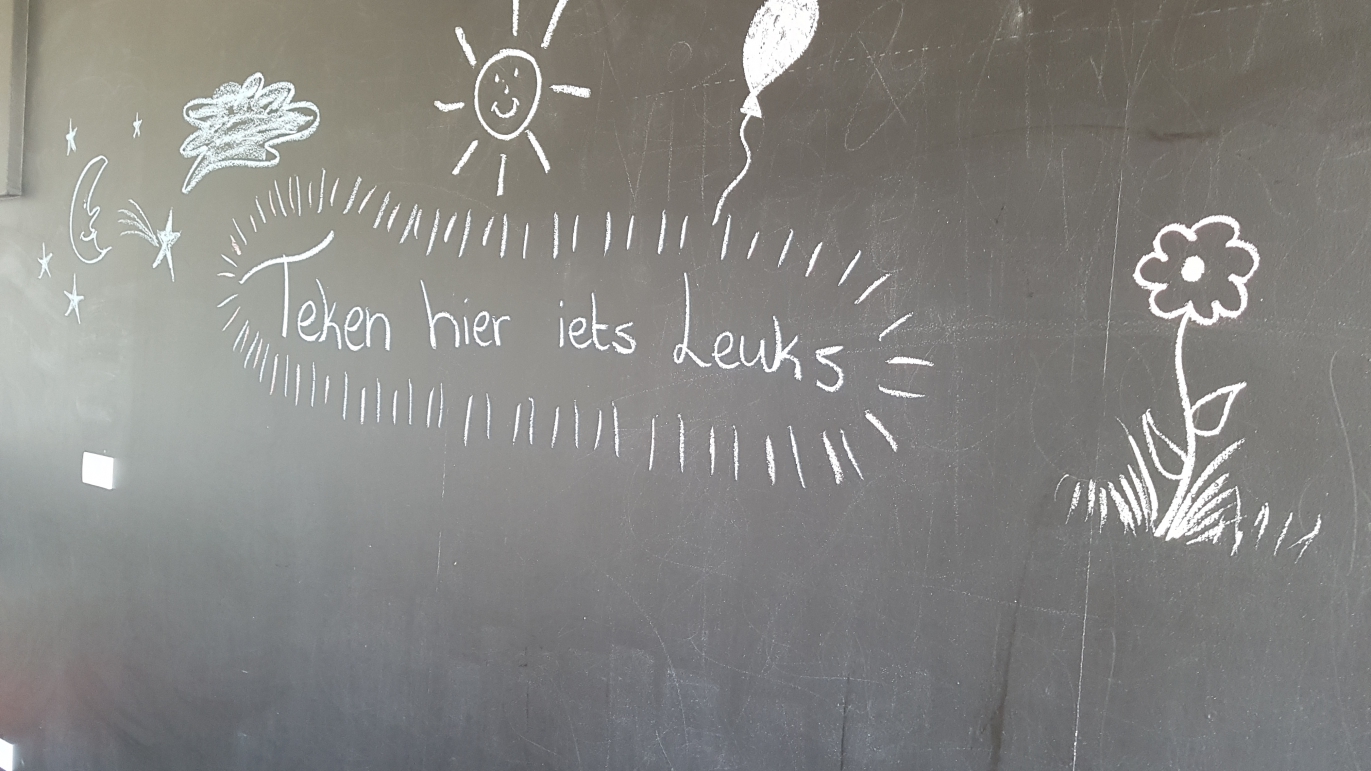 Teken hier iets Leuks